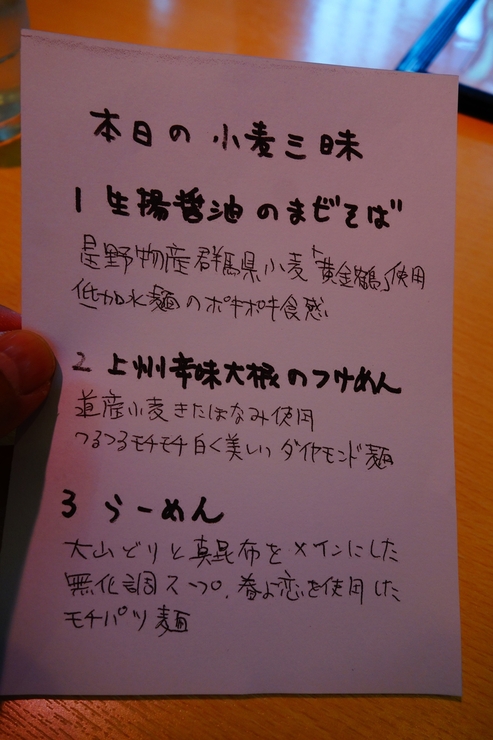 本日の小麦三昧
1 生揚醤油のまぜそば
星野物産群馬県小麦「黄金鶴」使用
低加水麺のポキポキ食感
2 上州辛味大根のつけめん
道産小麦きたほなみ使用
つるつるモチモチ白く美しいダイヤモンド麺
3 らーめん
大山どりと真昆布をメインにした
無化調スープ、春よ恋を使用した
モチパツ麺